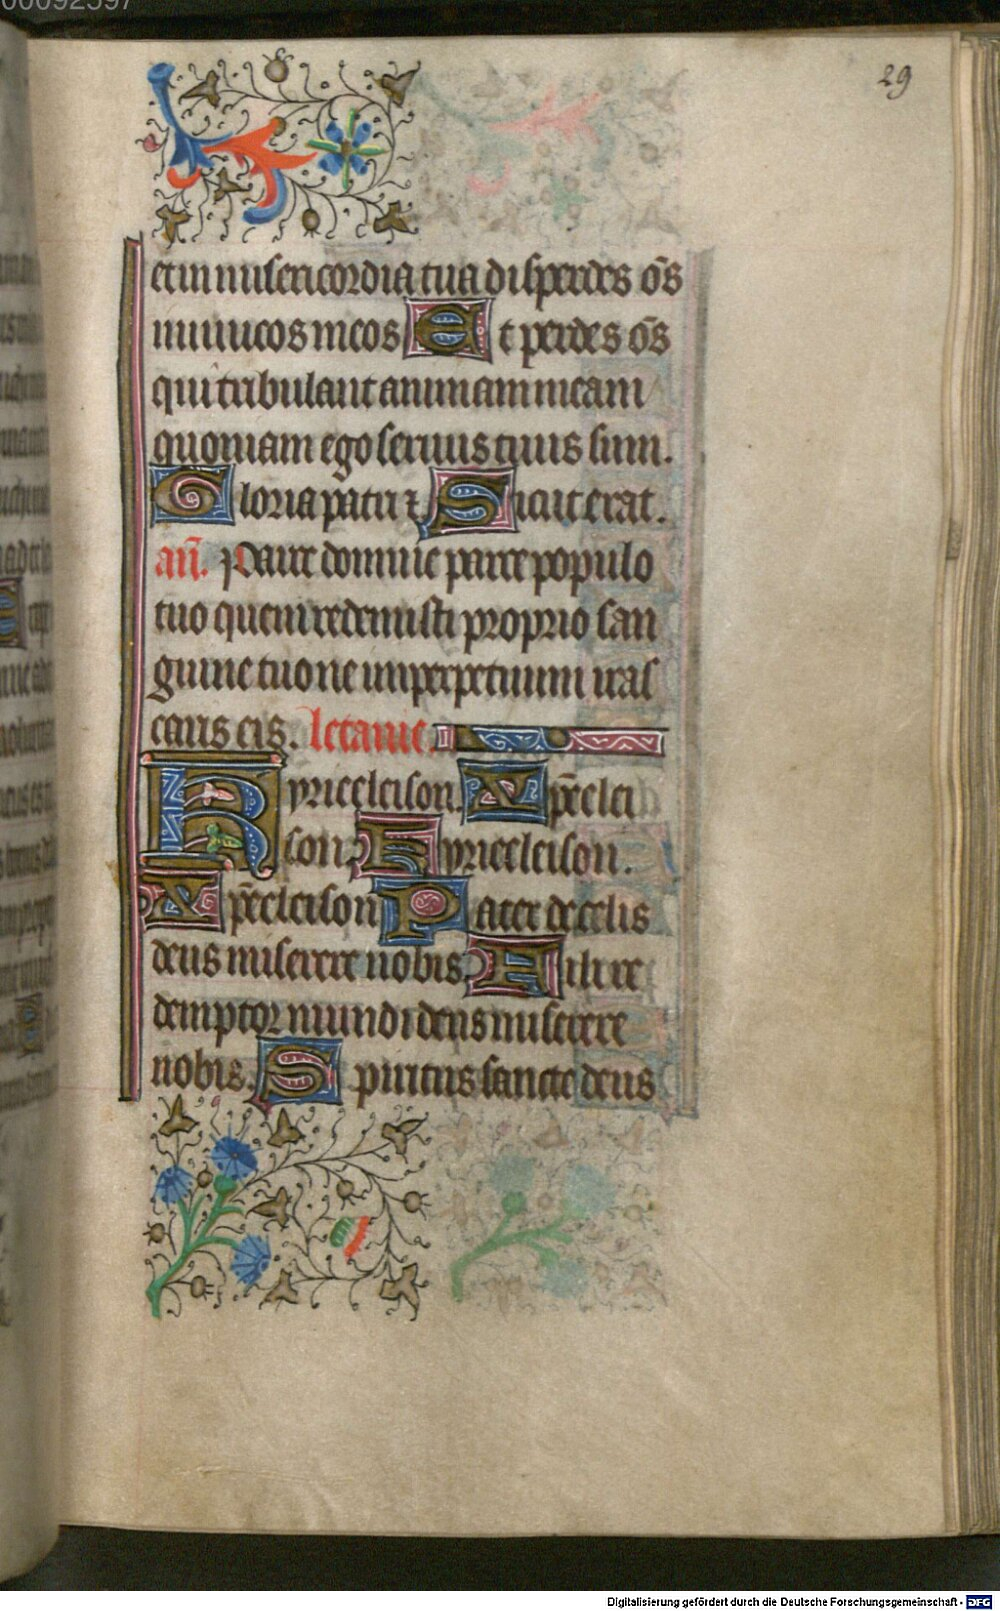 00092597
29
et in misericordia tua disperdes o̅s
inimicos meos Et perdes o̅s
qui tribulant animam meam
quoniam ego seruus tuus sum.
Gloria patri ⁊ Sicut erat.
an̅. Parce domine parce populo
tuo quem redemisti proprio san
guine tuo ne imperpetuum iras
caris eis. letanie.
Kyrieeleison. Xp̅eelei
son. Kyrieeleison.
Xp̅eeleison Pater de celis
deus miserere nobis. Fili re
demptor mundi deus miserere
nobis. Spiritus sancte deus
Digitalisierung gefördert durch die Deutsche Forschungsgemeinschaft - DFG